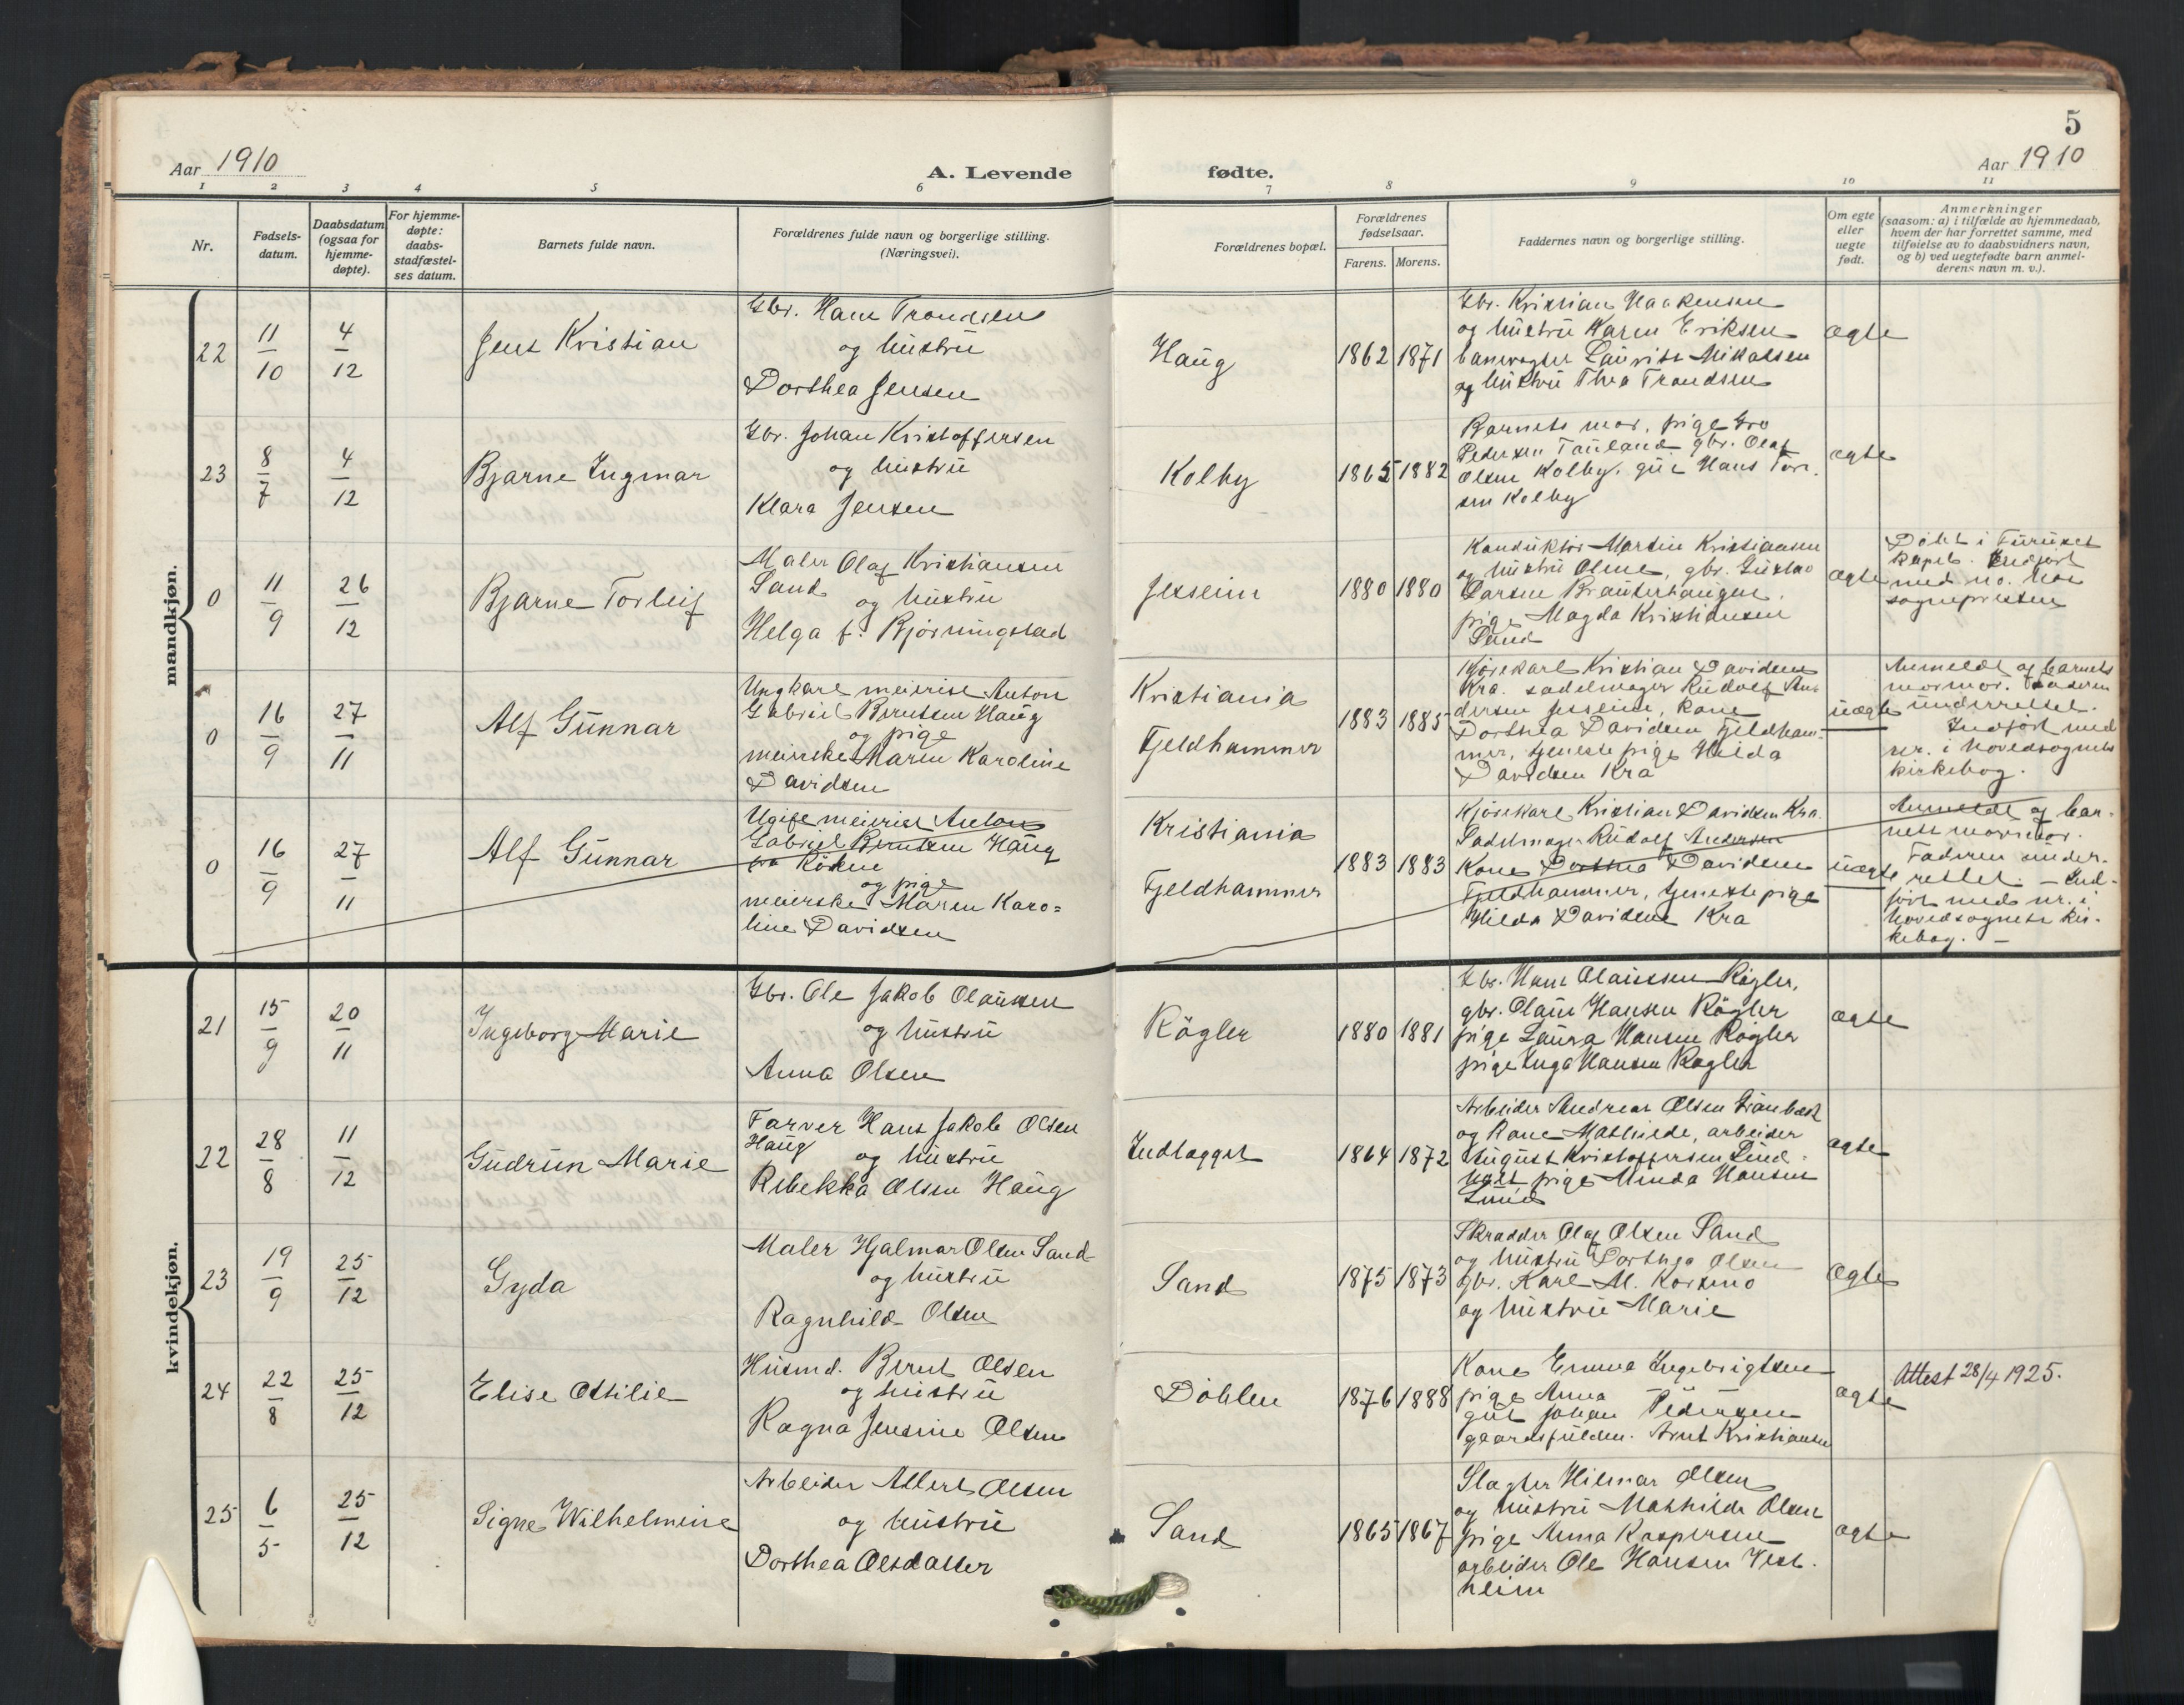 5
Aar 1910
A. Levende
fødte.
Aar 1910
1 2 3 4 5 6 7 8 9 10 11
Nr.
Fødsels-
datum.
Daabsdatum
(ogsaa for
hjemme-
døpte).
For hjemme-
døpte:
daabs-
stadfæstel-
ses datum.
Barnets fulde navn.
Forældrenes fulde navn og borgerlige stilling.
(Næringsvei).
Forældrenes bopæl.
Forældrenes
fødselsaar.
Farens. Morens.
Faddernes navn og borgerlige stilling.
Om egte
eller
uegte
født.
Anmerkninger
(saasom: a) i tilfælde av hjemmedaab,
hvem der har forrettet samme, med
tilføielse av to daabsvidners navn,
og b) ved uegtefødte barn anmel-
derens navn m. v.).
mandkjøn.
22
11
10
4
12
Jens Kristian
Gbr. Hans Trondsen
og hustru
Dorthea Jensen
Haug
1862 1871
Gbr. Kristian Haakensen
og hustru Karen Eriksen
banevogter Laurits Mikalsen
og hustru Thea Trondsen
ægte
23
8
7
4
12
Bjarne Ingmar
Gbr. Johan Kristoffersen
og hustru
Klara Jensen
Kolby
1865 1882
Barnets mor, pige Gro
Pedersen Tauland gbr. Olaf
Olsen Kolby, gut Hans Tor-
sen Kolby
ægte
0
11
9
26
12
Bjarne Torleif
Maler Olaf Kristiansen
Sand
og hustru
Helga f. Bjørningstad
Jesseim
1880 1880
Konduktør Martin Kristiansen
og hustru Oline, gbr. Gustav
Larsen Brauterhaugen,
pige Magda Kristiansen
Sand
ægte
Døbt i Furuset
kapel. Indført
med no. hos
sognepresten
0
16
9
27
11
Alf Gunnar
Ungkarl meierist Anton
Gabriel Berntsen Haug
og pige
meierske Maren Karoline
Davidsen
Kristiania
Fjeldhammer
1883 1885
Kjørekarl Kristian Davidsen
Kra. sadelmager Rudolf An-
dersen Jesseim, kone
Dorthea Davidsen Fjeldham-
mer, tjenestepige Hilda
Davidsen Kra
uægte
Anmeldt af barnets
mormor. Faderen
underrettet.
Indført med
nr. i hovedsognets
kirkebog.
0
16
9
27
11
Alf Gunnar
Ugift meierist Anton
Gabriel Berntsen Haug
fra Röken
og pige
meierske Maren Karo=
line Davidsen
Kristiania
Fjeldhammer
1883 1883
Kjørekarl Kristian Davidsen Kra.
Sadelmager Rudolf Andersen
Kone Dorthea Davidsen
Fjeldhammer, tjenestepige
Hilda Davidsen Kra
uægte
Anmeldt af bar-
nets mormor.
Faderen under-
rettet. – Ind-
ført med nr. i
hovedsognets kir-
kebog. –
kvindekjøn.
21
15
9
20
11
Ingeborg Marie
Gbr. Ole Jakob Olaussen
og hustru
Anna Olsen
Rögler
1880 1881
Gbr. Hans Olaussen Rögler,
gbr. Olaus Hansen Rögler
pige Laura Hansen Rögler
pige Inga Hansen Rögler
ægte
22
28
8
11
12
Gudrun Marie
Farver Hans Jakob Olsen
Haug
og hustru
Rebekka Olsen Haug
Indlagget
1864 1872
Arbeider Andreas Olsen Grønbæk
og kone Mathilde, arbeider
August Kristoffersen Lind-
holt pige Minda Hansen
ægte
23
19
9
25
12
Gyda
Maler Hjalmar Olsen Sand
og hustru
Ragnhild Olsen
Sand
1875 1873
Skrædder Olaf Olsen Sand
og hustru Dorthea Olsen
gbr. Karl M. Korsmo
og hustru Marie
Ægte
24
22
8
25
12
Elise Ottilie
Husmd. Bernt Olsen
og hustru
Ragna Jensine Olsen
Döhlen
1876 1888
Kone Emma Ingebrigtsen
pige Anna
gut Johan Pedersen
gaardsfulden. Arnt Kristiansen
ægte
Attest 28/4 1925.
25
6
5
25
12
Signe Wilhelmine
Arbeider Albert Olsen
og hustru
Dorthea Olsdatter
Sand
1865 1867
Slagter Hilmar Olsen
og hustru Mathilde Olsen
pige Anna Kaspersen
arbeider Ole Hansen Vest-
heim
ægte